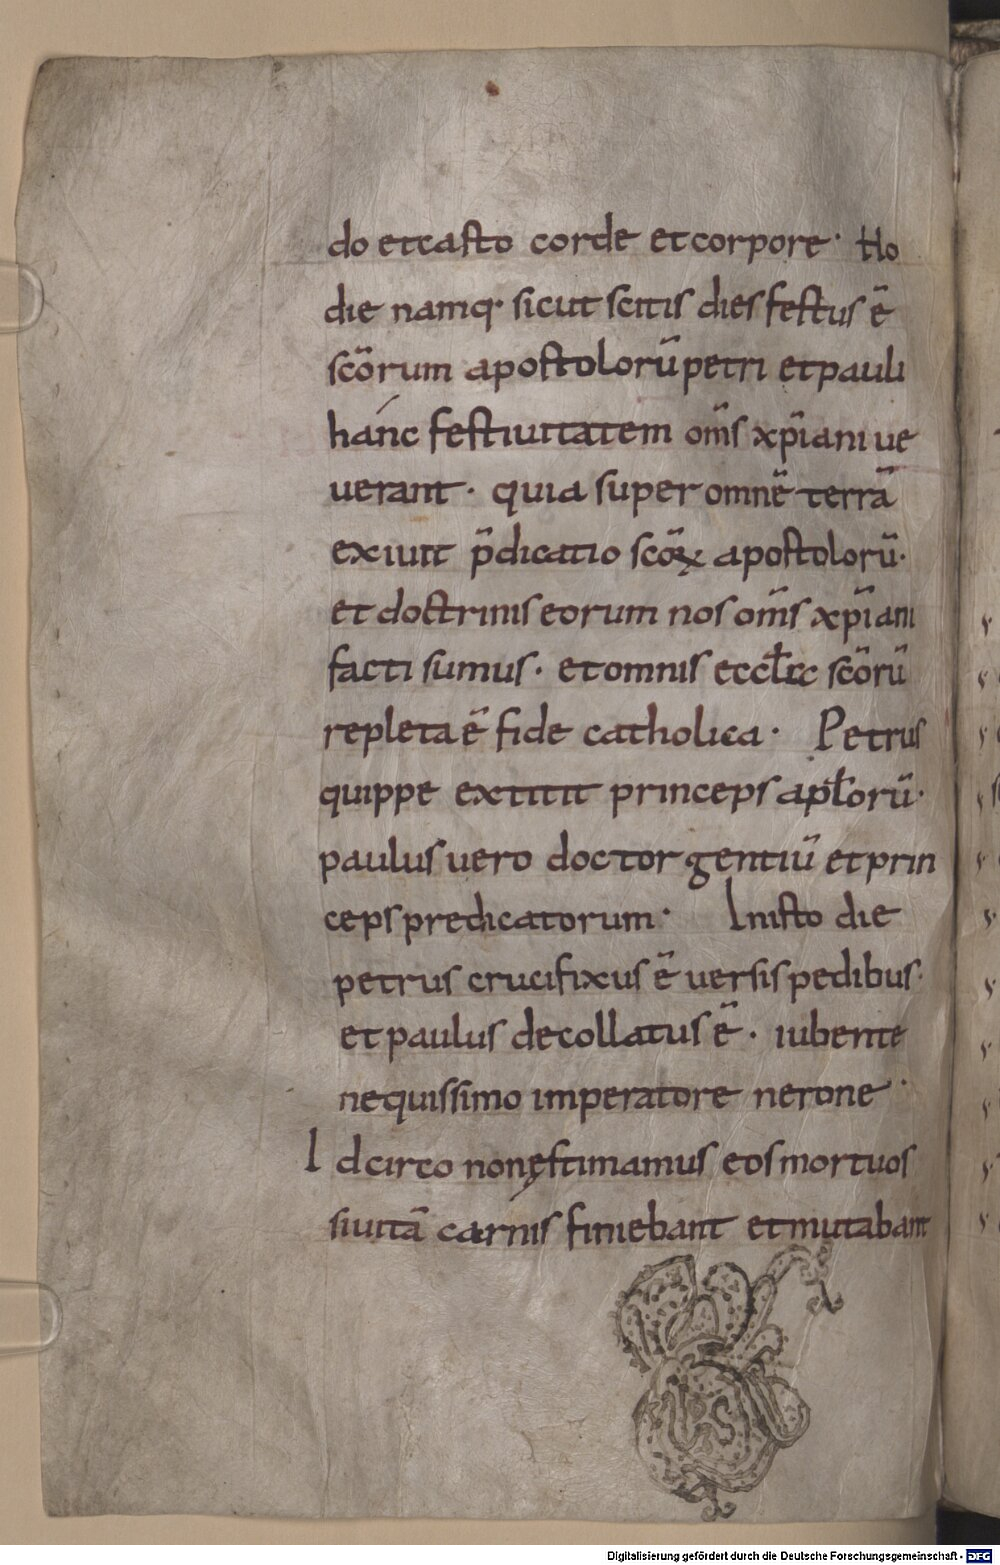 do et casto corde et corpore· Ho
die namq· sicut scitis dies festus ē
scōrum apostolorū petri et pauli
hanc festiuitatem om̄s xp̄iani ue
uerant· quia super omnē terrā
exiuit p̄dicatio scōꝝ apostolorū·
et doctrinis eorum nos om̄s xp̄iani
facti sumus· et omnis eccl̄a scōrū
repleta ē fide catholica· Petrus
quippe extitit princeps apl̄orū·
paulus uero doctor gentiū et prin
ceps predicatorum· In isto die
petrus crucifixus ē uersis pedibus·
et paulus decollatus ē· iubente
nequissimo imperatore nerone·
Idcirco non ęstimamus eos mortuos
si uitā carnis finiebant et mutabant
Digitalisierung gefördert durch die Deutsche Forschungsgemeinschaft - DFG